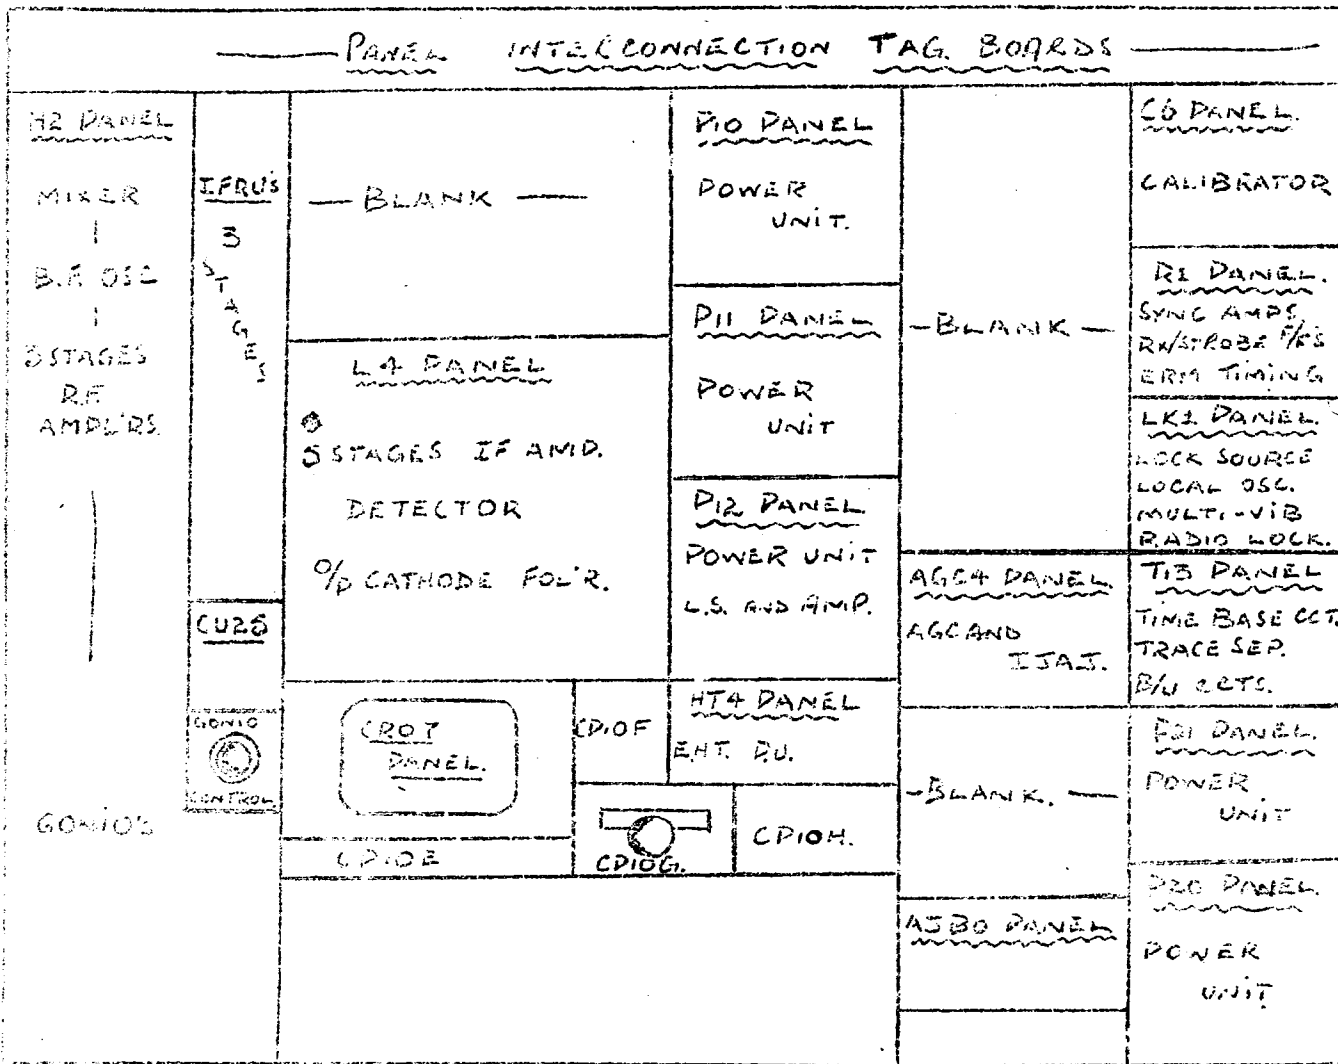 PANEL INTERCONNECTION TAG. BOARDS
H2 PANEL
MIXER
B.F. OSC
3 STAGES
R.F.
AMPL'RS.
GONIO'S
IFRU'S
3
STAGES
CU25
GONIO
CONTROL
— BLANK —
L4 PANEL
5 STAGES IF AMP.
DETECTOR
O/P CATHODE FOL'R.
CRO7
PANEL.
CP10E
CP10F
CP10G.
CP10H.
P10 PANEL
POWER
UNIT.
P11 PANEL
POWER
UNIT
P12 PANEL
POWER UNIT
L.S. AND AMP.
HT4 PANEL
E.H.T. P.U.
— BLANK —
AGC4 PANEL
AGC AND
I.J.A.J.
— BLANK. —
AJB0 PANEL
C6 PANEL.
CALIBRATOR
R1 PANEL.
SYNC AMPS.
RX/STROBE F/F'S
ERM TIMING
LK1 PANEL.
LOCK SOURCE
LOCAL OSC.
MULTI-VIB
RADIO LOCK.
T13 PANEL
TIME BASE CCT.
TRACE SEP.
B/U CCTS.
P21 PANEL.
POWER
UNIT
P20 PANEL.
POWER
UNIT